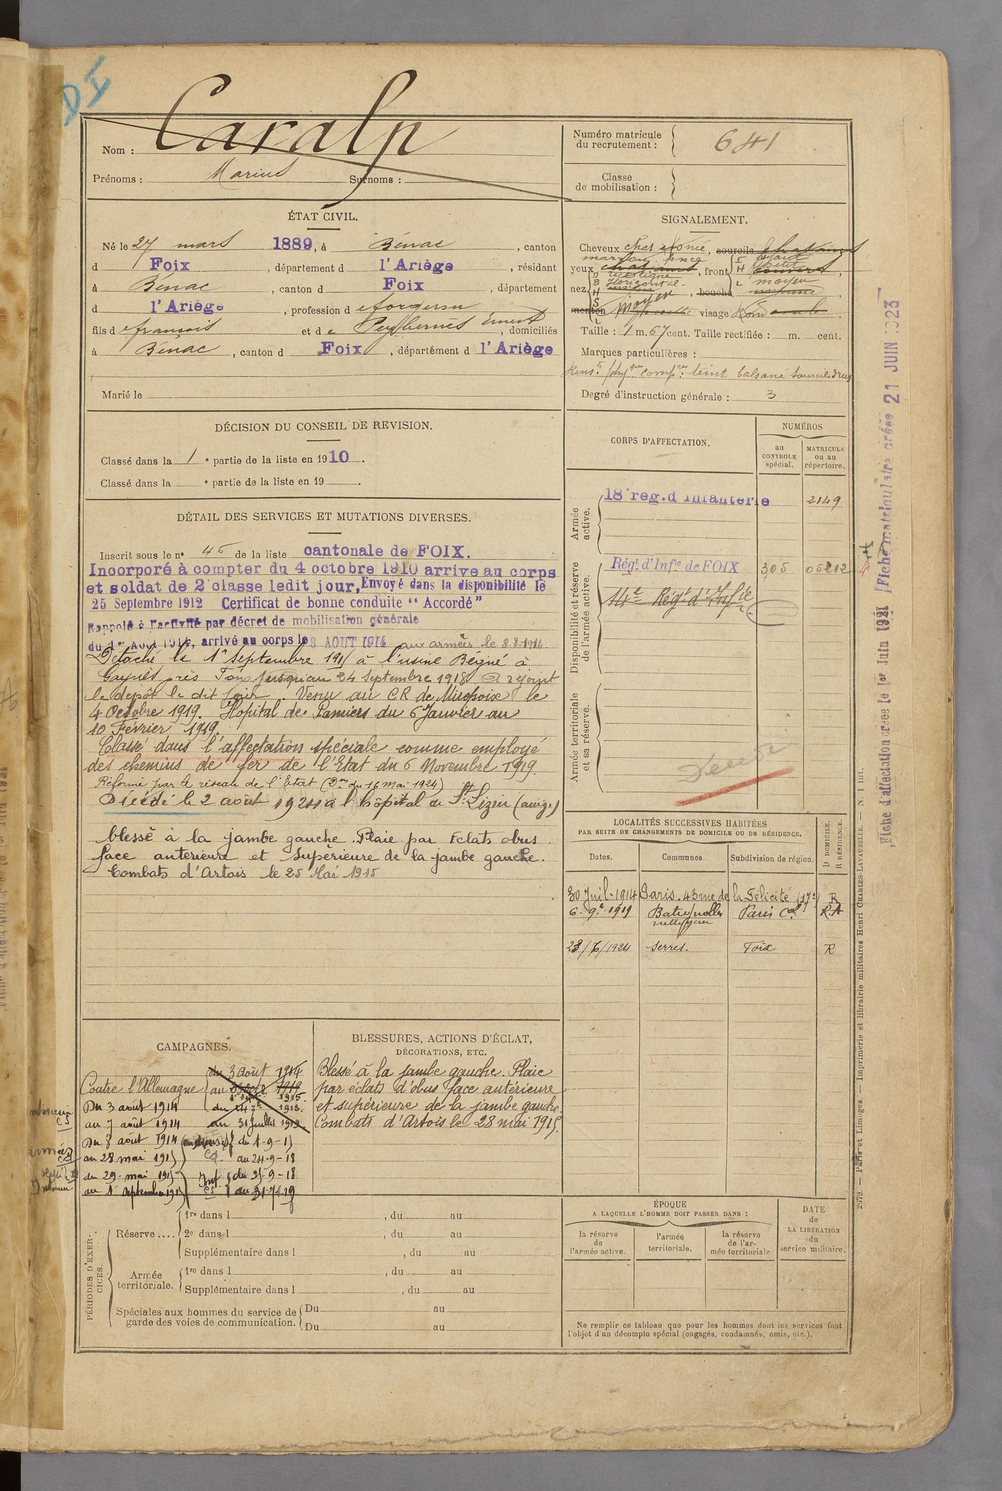 DI
Nom : Caralp
Prénoms : Marius Surnoms :
Numéro matricule du recrutement : 641
Classe de mobilisation :
ÉTAT CIVIL.
Né le 27 mars 1889, à Bénac, canton
d Foix, département d l'Ariège, résidant
à Bénac, canton d Foix, département
d l'Ariège, profession de forgeron
fils de francois et de Peybernes Ernest, domiciliés
à Bénac, canton d Foix, département d l'Ariège
Marié le
SIGNALEMENT.
Cheveux chat foncé, sourcils chatains
marron foncé
yeux chatains, front
nez, bouche moyenne
menton visage Rond
Taille : 1 m. 67 cent. Taille rectifiée : m. cent.
Marques particulières :
teint basané
Degré d'instruction générale : 3
DÉCISION DU CONSEIL DE REVISION.
Classé dans la 1e partie de la liste en 1910.
Classé dans la e partie de la liste en 19
DÉTAIL DES SERVICES ET MUTATIONS DIVERSES.
Inscrit sous le no 46 de la liste cantonale de FOIX.
Incorporé à compter du 4 octobre 1910 arrive au corps
et soldat de 2e classe ledit jour, Envoyé dans la disponibilité le
25 Septembre 1912 Certificat de bonne conduite "Accordé"
Rappelé à l'activité par décret de mobilisation générale
du 1er Août 1914, arrivé au corps le 3 AOUT 1914 aux armées le 8.8.1914
Détaché le 1er Septembre 1915 à l'usine Bégné à
près Foix jusqu'au 24 septembre 1918 a rejoint
le dépôt le dit jour. Venu au CR de Mirepoix le
4 Octobre 1919. Hopital de Pamiers du 6 Janvier au
10 Février 1919.
Classé dans l'affectation spéciale comme employé
des chemins de fer de l'Etat du 6 Novembre 1919.
Réformé par le réseau de l'Etat (Don du 16 mai 1924)
Décédé le 2 août 1924 à l'hôpital de St Lizier (ariège)
blessé à la jambe gauche. Plaie par Eclats obus
face antérieure et supérieure de la jambe gauche.
Combats d'Artois le 25 Mai 1915
CORPS D'AFFECTATION.
NUMÉROS
au CONTROLE spécial.
MATRICULE ou au répertoire.
Armée active.
18e reg. d'infanterie 2149
Disponibilité et réserve de l'armée active.
Régt d'Infie de FOIX 305 05212
14e Régt d'Infie
Armée territoriale et sa réserve.
LOCALITÉS SUCCESSIVES HABITÉES
PAR SUITE DE CHANGEMENTS DE DOMICILE OU DE RÉSIDENCE.
Dates. Communes. Subdivision de région. D DOMICILE. R RÉSIDENCE.
30 Juil-1914 Paris. 43 rue de la Félicité (17e) R
6. 9e 1919 Batignolles Paris Cal R
28/6/1924 Serres. Foix R
CAMPAGNES.
Contre l'Allemagne
du 3 août 1914
Du 3 août 1914
au 7 août 1914 au 31 juillet 1919
Du 8 août 1914 du 1-9-15
au 28 mai 1915 au 24-9-18
du 29-mai 1915 du 25-9-18
au 1 septembre 1915 au 31-7-19
BLESSURES, ACTIONS D'ÉCLAT,
DÉCORATIONS, ETC.
Blessé à la jambe gauche. Plaie
par éclats d'obus face antérieure
et supérieure de la jambe gauche
Combats d'Artois le 28 mai 1915.
PÉRIODES D'EXERCICES.
Réserve....
1re dans l , du au
2e dans l , du au
Supplémentaire dans l , du au
Armée territoriale.
1re dans l , du au
Supplémentaire dans l , du au
Spéciales aux hommes du service de garde des voies de communication.
Du au
Du au
ÉPOQUE
A LAQUELLE L'HOMME DOIT PASSER DANS :
la réserve de l'armée active.
l'armée territoriale.
la réserve de l'armée territoriale
DATE de LA LIBÉRATION du service militaire.
Ne remplir ce tableau que pour les hommes dont les services font
l'objet d'un décompte spécial (engagés, condamnés, omis, etc.).
2979. — Paris et Limoges. — Imprimerie et librairie militaires Henri CHARLES-LAVAUZELLE. — N. 1 int.
Fiche d'affectation créée le 1er Juin 1921
Fiche matriculaire créée 21 JUIN 1923